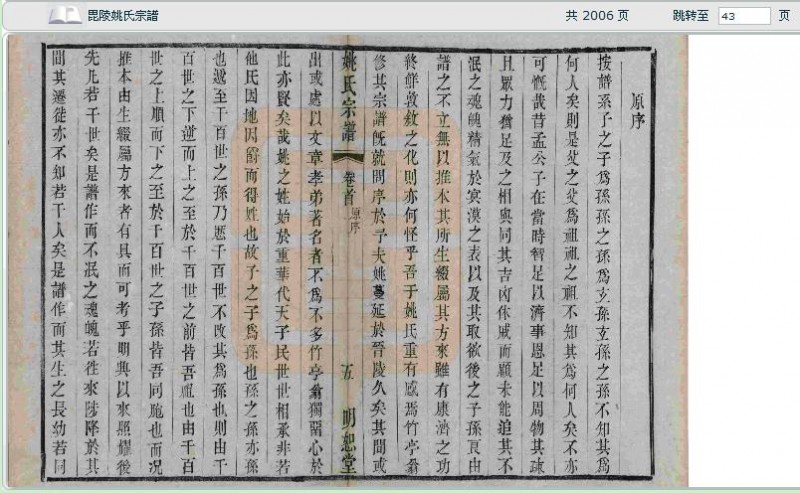 毘陵姚氏宗譜
共 2006 页
跳转至 43 页
原序
按譜孫子之子爲孫孫之孫爲玄孫玄孫之孫不知其爲
何人矣則是父之父爲祖祖之祖不知其爲何人矣不亦
可慨哉昔孟公子在當時智足以濟事恩足以周物其疎
且眾力猶足及之相與同其吉凶休戚而顧未能追其不
泯之魂魄精氣於冥漠之表以及其取欲後之子孫良由
譜之不立無以推本其所生綴屬其方來雖有康濟之功
終鮮敦敘之化則亦何怪乎吾于姚氏重有感焉竹亭翁
修其宗譜既就問序於予夫姚蔓延於晉陵久矣其間或
姚氏宗譜
卷首
原序
五
明恕堂
出或處以文章孝弟著名者不爲不多竹亭翁獨留心於
此亦賢矣哉姚之姓始於重華代天子民世世相承非若
他氏因地因爵而得姓也故子之子爲孫也孫之孫亦孫
也遞至千百世之孫乃歷千百世不改其爲孫也則由千
百世之下遡而上之至於千百世之前皆吾祖也由千百
世之上順而下之至於千百世之子孫皆吾同胞也而況
推本由生綴屬方來者有具而可考乎明典以來照耀後
先凡若干世矣是譜作而不泯之魂魄若徃來陟降於其
間其遷徙亦不知若干人矣是譜作而其生之長幼若同